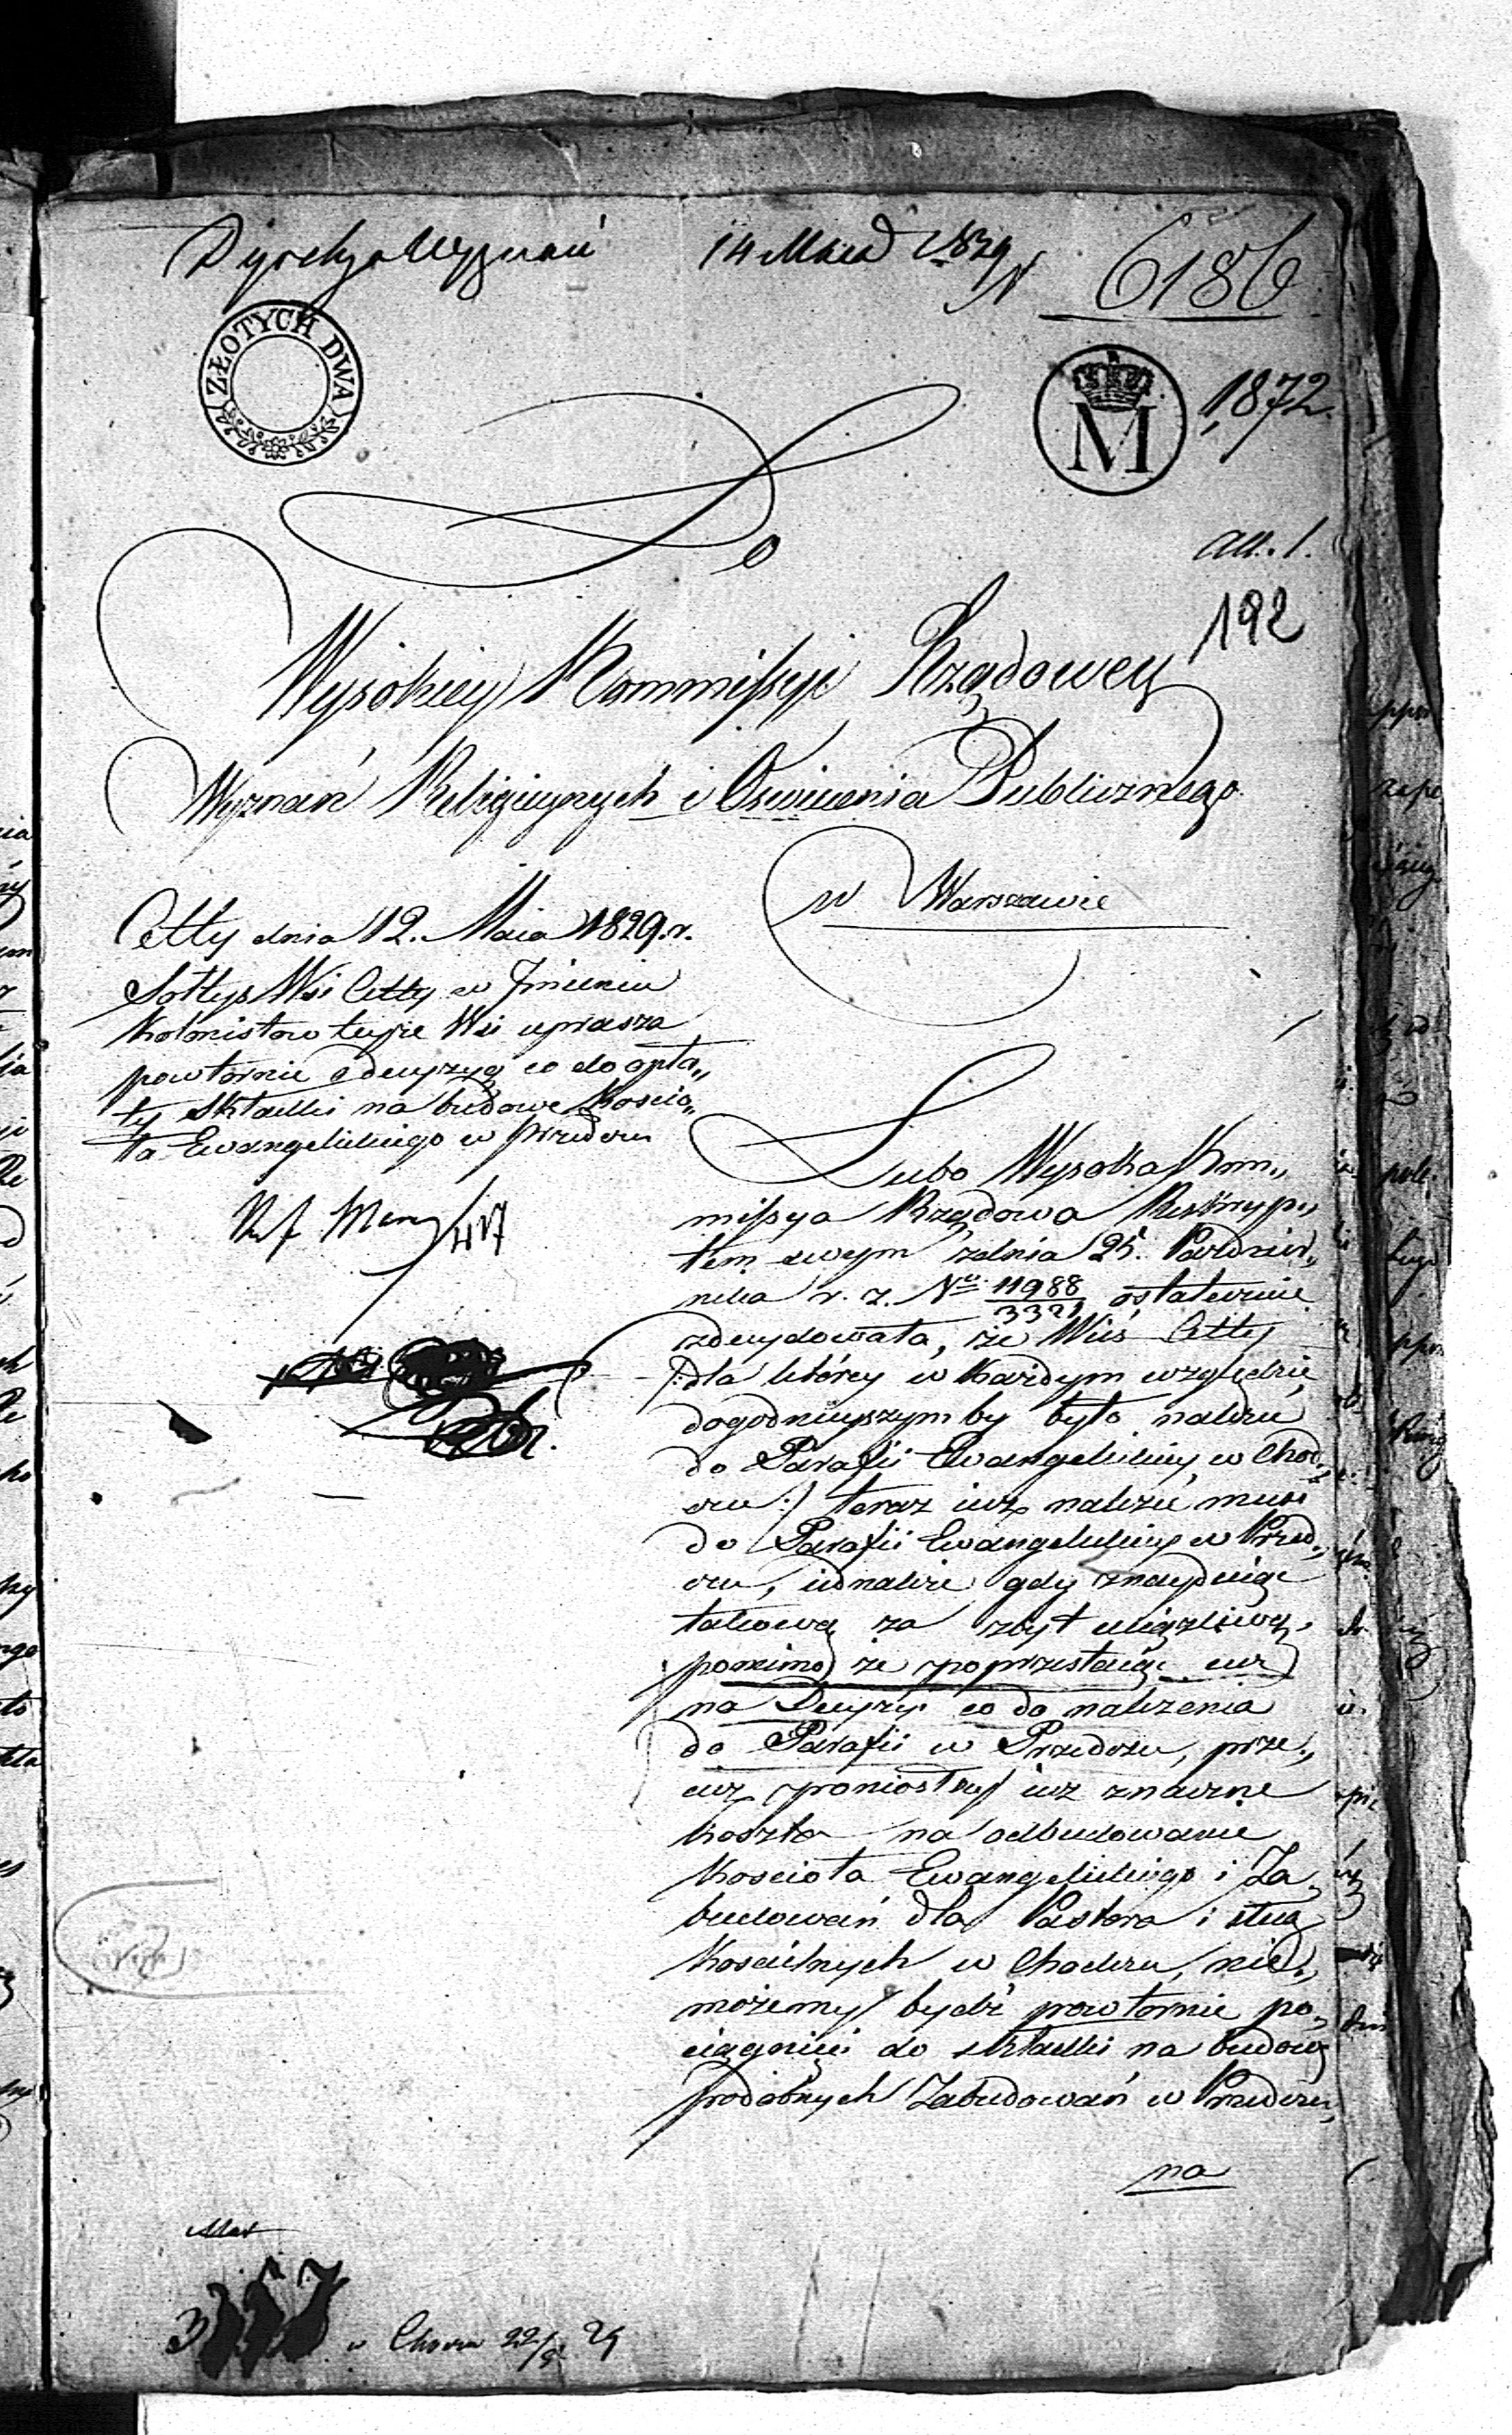 Dyrekcya Wyznań 14 Maia 1829 N 6186
ZŁOTYCH DWA
M
1872.
all. 1.
192
Do
Wysokiey Kommissyi Rządowey
Wyznań Religiynych i Oświecenia Publicznego
w Warszawie
Cetty dnia 12. Maia 1829. r.
Sołtys Wsi Cetty w Jmieniu
Kolonistow teyże Wsi uprasza
powtornie o decyzyą co do opła„
ty składki na budowe Koscio„
ła Ewangelickiego w Przedczu
Lubo Wysoka Kom„
missya Rządowa Reskryp„
tem swym z dnia 25. Pazdzier„
nika r. z. No 11988/3321 ostatecznie
zdecydowała, że Wieś Cetty
/: dla którey w każdym względzie
dogodnieyszym by było należeć
do Parafii Ewangelickiey w Chod„
czu :/ teraz iuż należeć musi
do Parafii Ewangelickiey w Przed„
czu, iednakże gdy znayduiąc
takową za zbyt uciążliwą,
pomimo że poprzestaiąc iuż
na Decyzyi co do należenia
do Parafii w Przedczu, prze„
ciż poniosłszy iuż znaczne
koszta na odbudowanie
Kościoła Ewangelickiego i Za„
budowań dla Pastora i sług
Kościelnych w Chodczu, nie„
możemy bydź powtornie po„
ciągnięci do składki na budowę
podobnych Zabudowań w Przedczu,
na
w 22/5 29